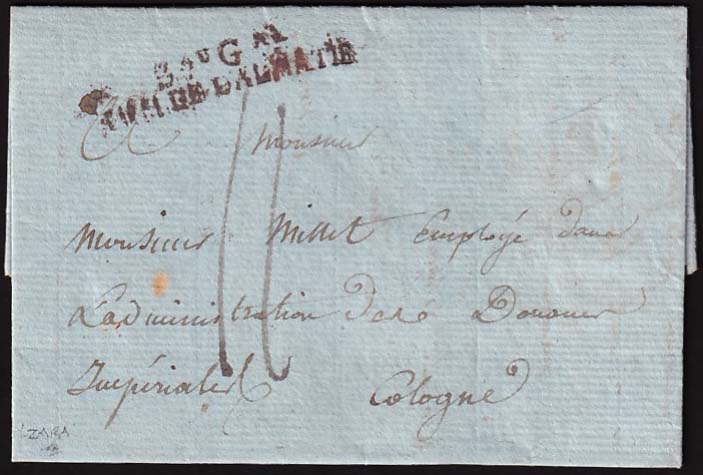 B.AU G.AL
ARM.DE DALMATIE
11
A Monsieur
Monsieur Millet Employé dans
L'administration des Douanes
Impériales Cologne
ZARA